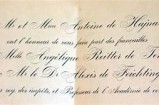 M et Mme Antoine de Hajna
ont l'honneur de vous faire part des fiançailles
Melle Angélique Reitter de Te
M le Dr Alexis de Feichting
roy. des impôts, et Professeur de l'Académie de